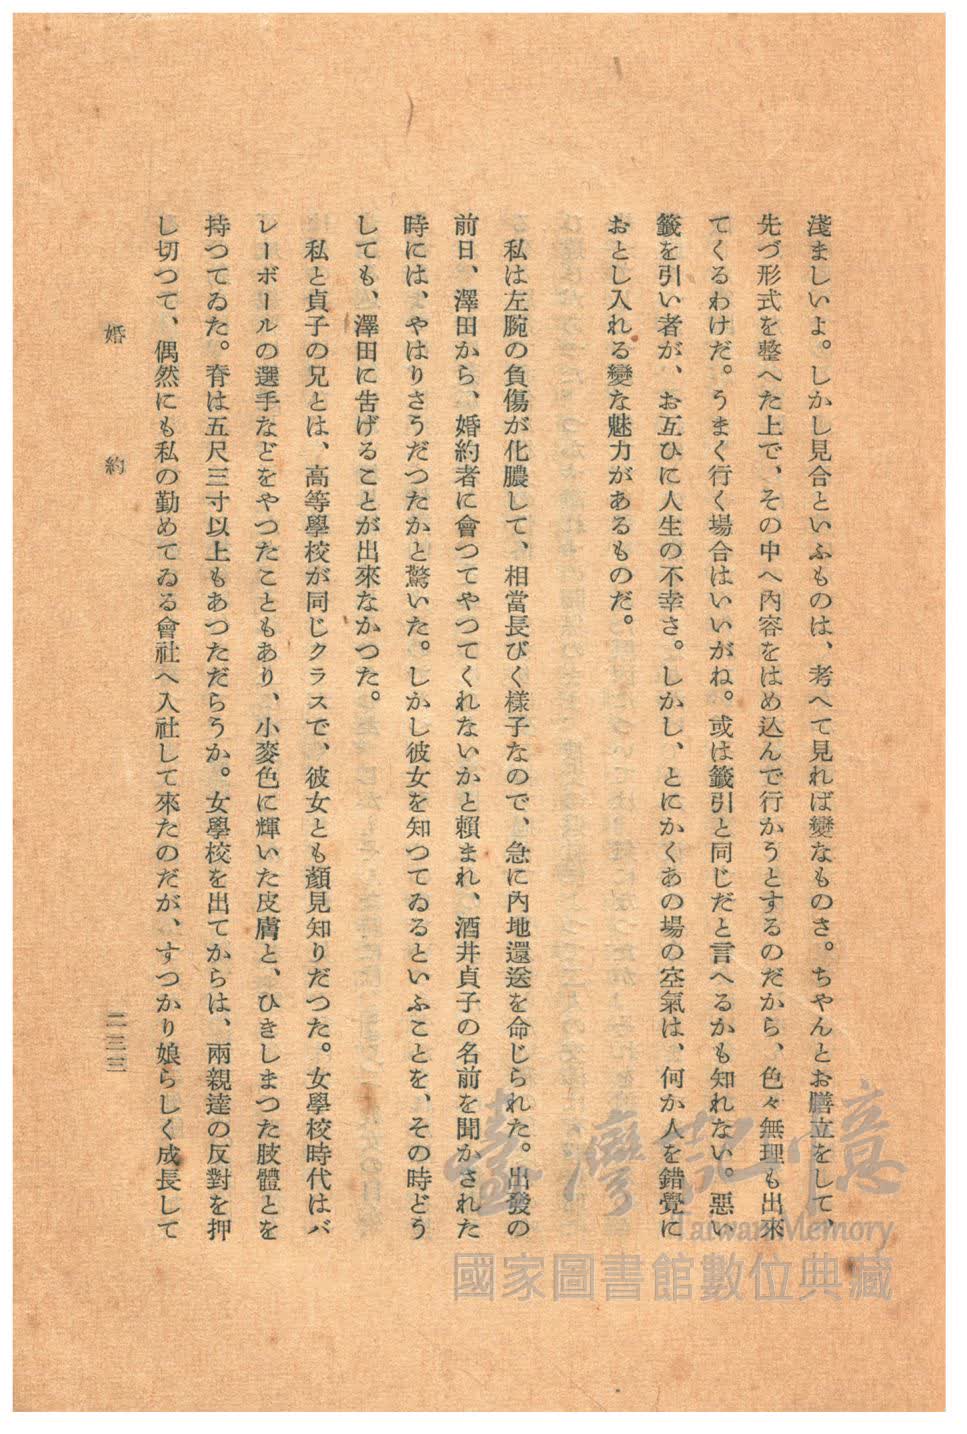 淺ましいよ。しかし見合といふものは、考へて見れば變なものさ。ちやんとお膳立をして、
先づ形式を整へた上で、その中へ內容をはめ込んで行かうとするのだから、色々無理も出來
てくるわけだ。うまく行く場合はいいがね。或は籤引と同じだと言へるかも知れない。惡い
籤を引い者が、お互ひに人生の不幸さ。しかし、とにかくあの場の空氣は、何か人を錯覺に
おとし入れる變な魅力があるものだ。
私は左腕の負傷が化膿して、相當長びく樣子なので、急に內地還送を命じられた。出發の
前日、澤田から、婚約者に會つてやつてくれないかと賴まれ、酒井貞子の名前を聞かされた
時には、やはりさうだつたかと驚いた。しかし彼女を知つてゐるといふことを、その時どう
しても、澤田に吿げることが出來なかつた。
私と貞子の兄とは、高等學校が同じクラスで、彼女とも顏見知りだつた。女學校時代はバ
レーボールの選手などをやつたこともあり、小麥色に輝いた皮膚と、ひきしまつた肢體とを
持つてゐた。脊は五尺三寸以上もあつただらうか。女學校を出てからは、兩親達の反對を押
し切つて、偶然にも私の勤めてゐる會社へ入社して來たのだが、すつかり娘らしく成長して
婚約
二三三
臺灣記憶
Taiwan Memory
國家圖書館數位典藏